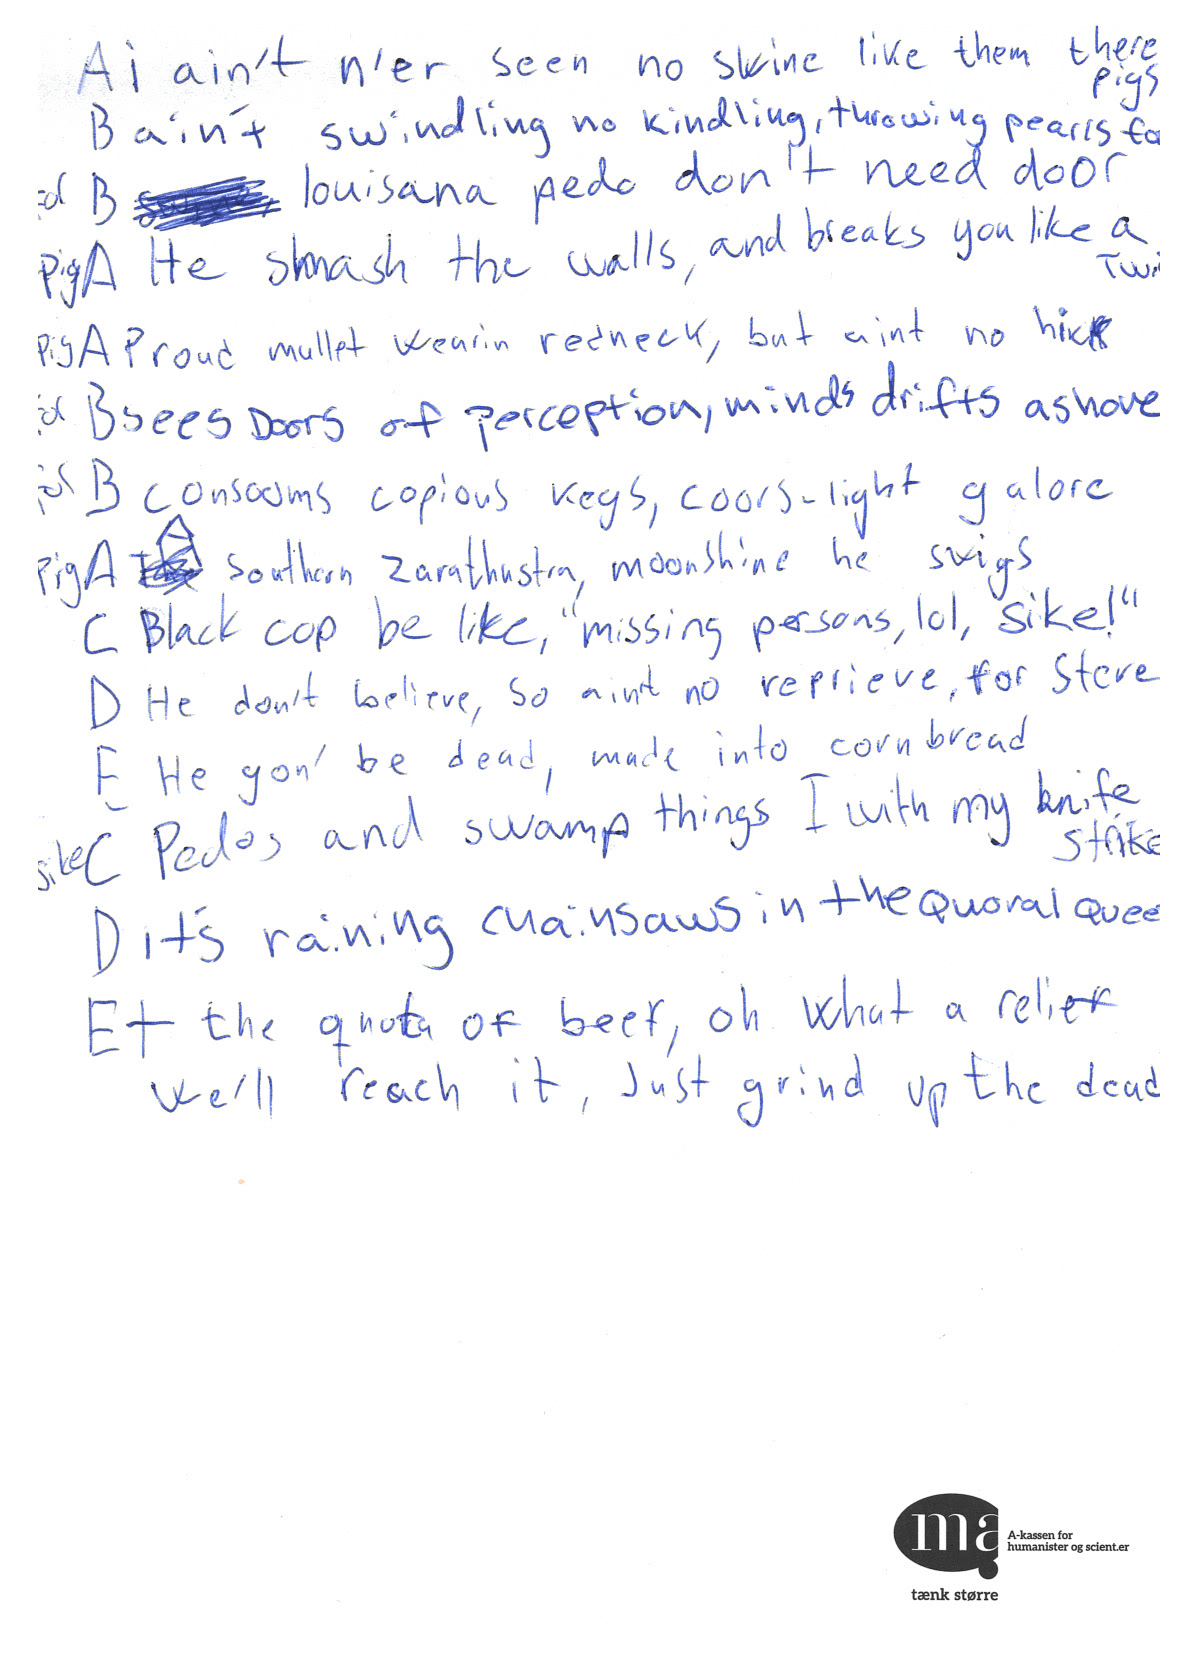 A i ain't n'er seen no swine like them there
pigs
B ain't swindling no kindling, throwing pearls fo
B louisana pedo don't need door
pig A He smash the walls, and breaks you like a
Twi
pig A Proud mullet wearin redneck, but aint no hick
B sees Doors of perception, minds drifts ashore
B consooms copious kegs, coors-light galore
pig A southern Zarathustra, moonshine he swigs
C Black cop be like, "missing persons, lol, sike!"
D He don't believe, so aint no reprieve, for Steve
E He gon' be dead, made into cornbread
sike C Pedos and swamp things I with my knife
strike
D it's raining chainsaws in the Quoral Quee
E t the quota of beef, oh what a relief
we'll reach it, Just grind up the dead
ma
A-kassen for
humanister og scient.er
tænk større